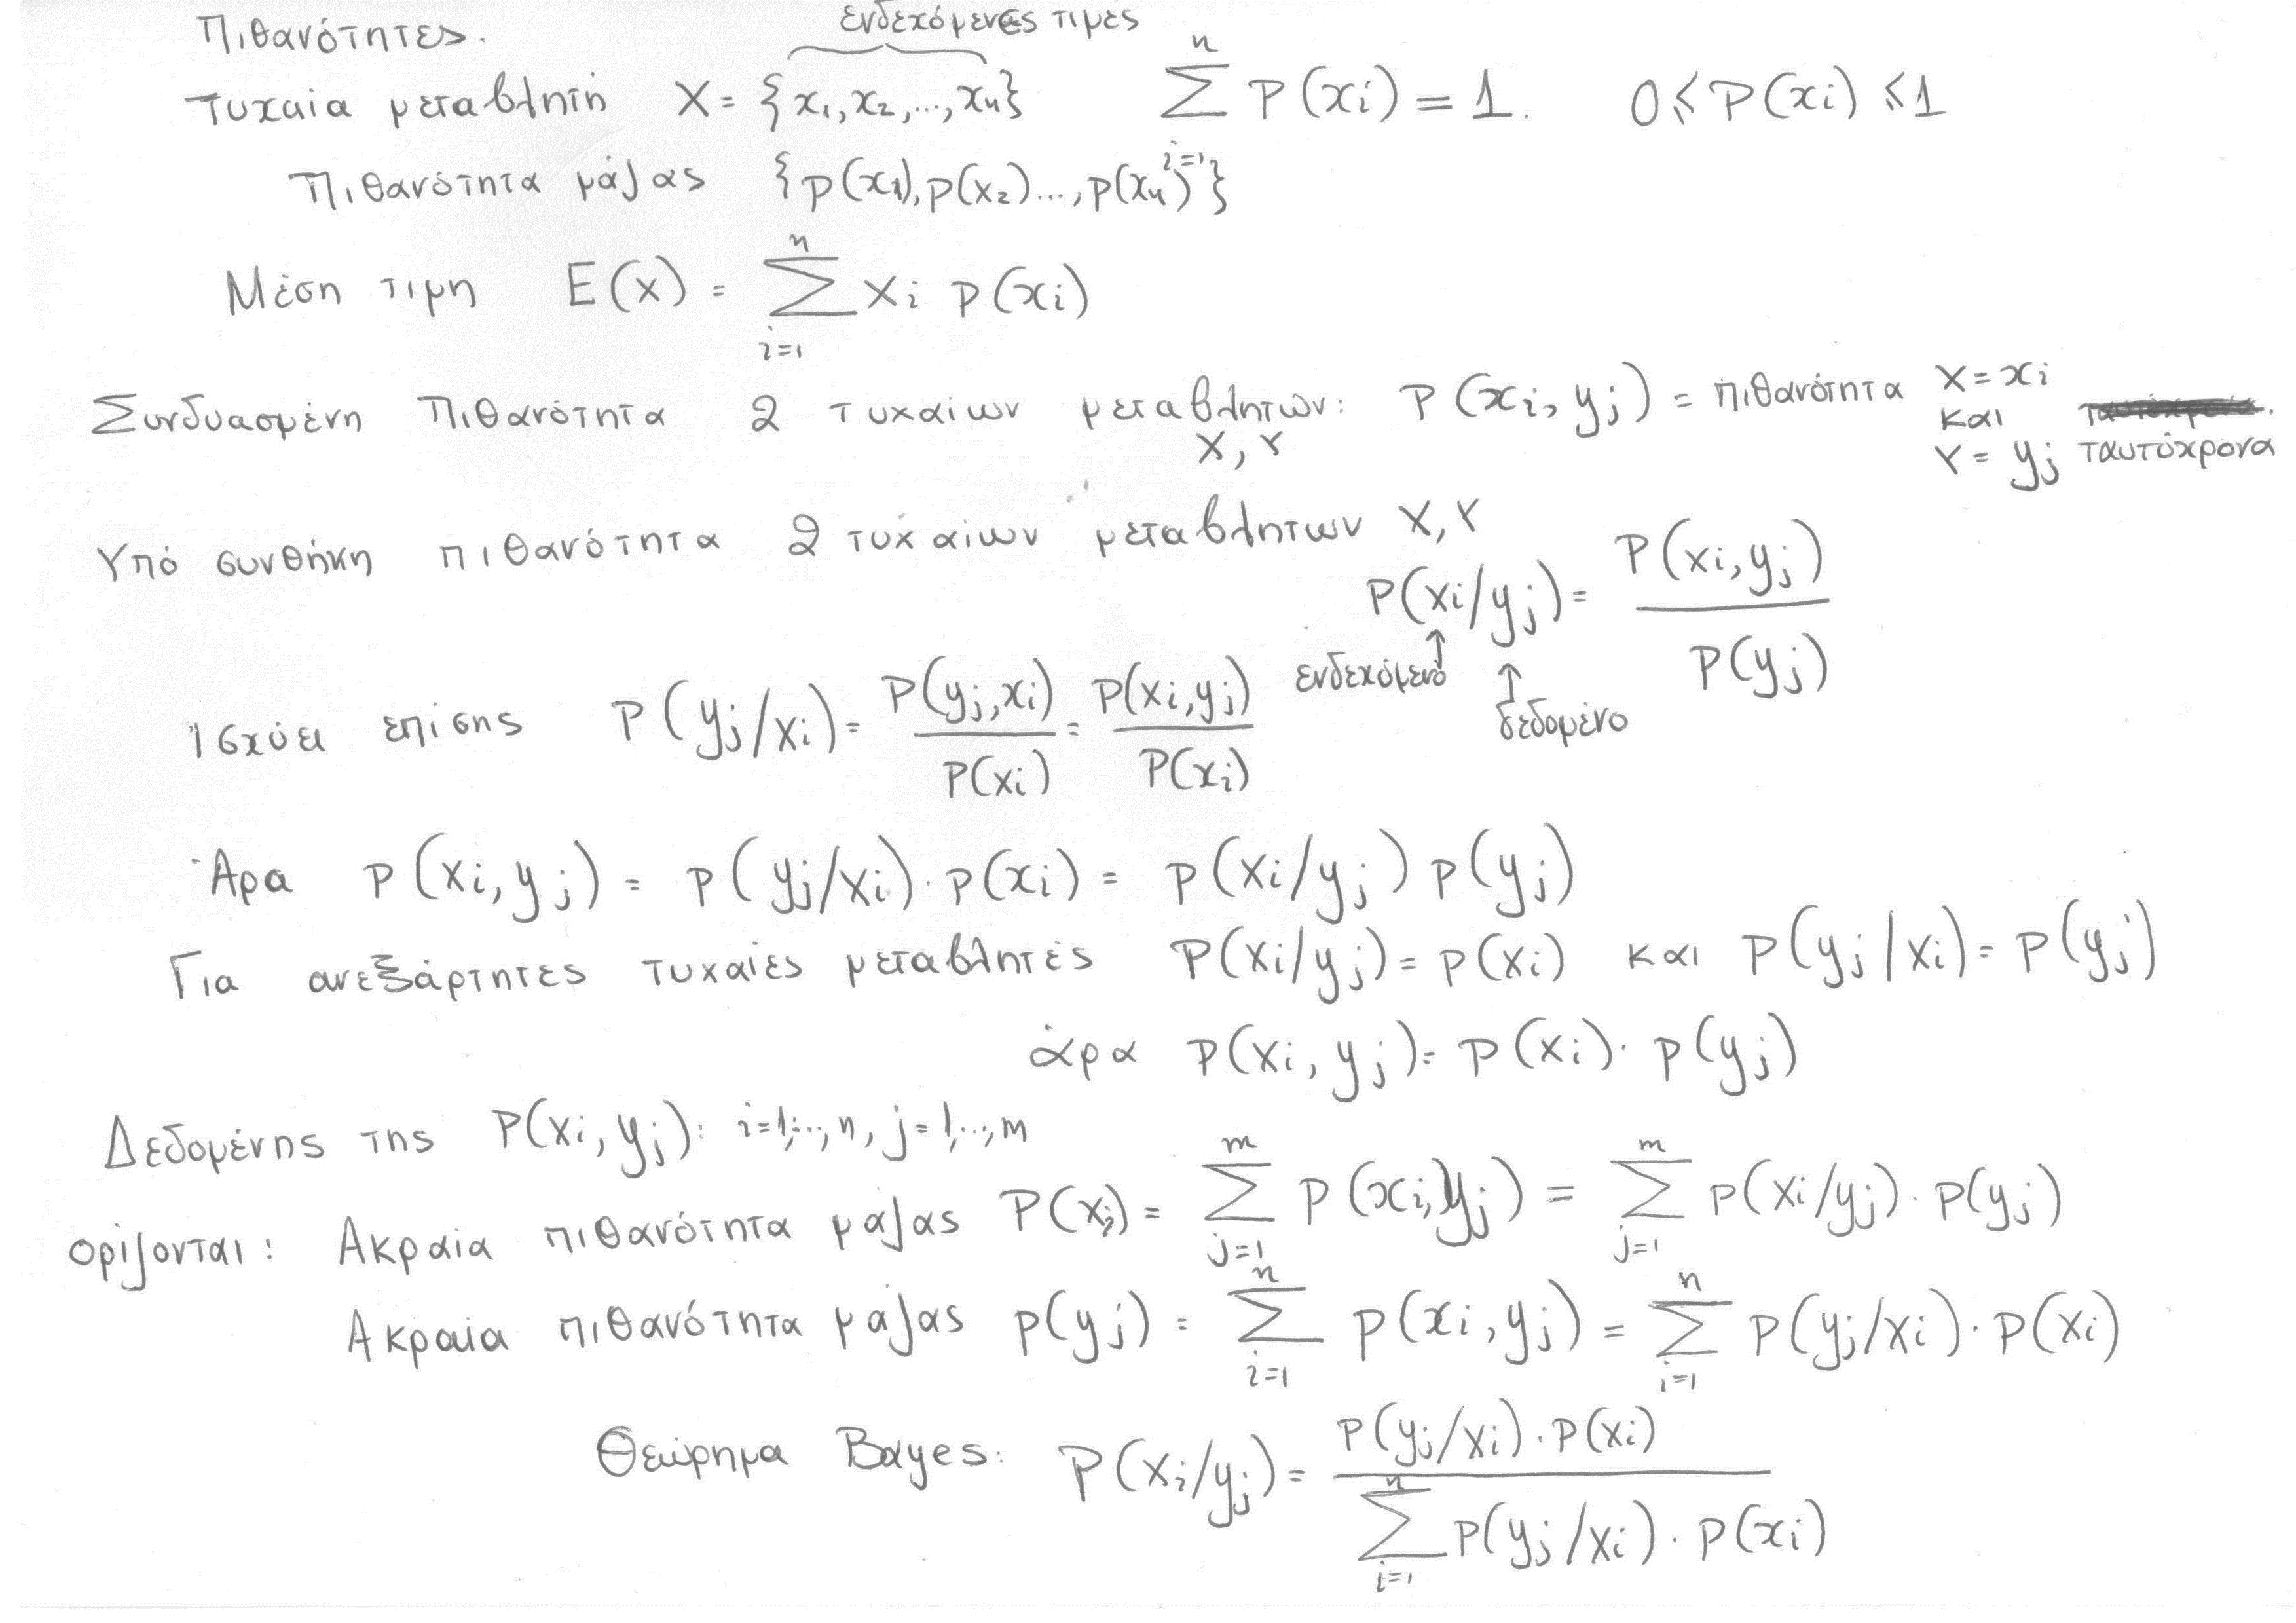 Πιθανότητες.
ενδεχόμενες τιμές
Τυχαία μεταβλητή X = {x₁, x₂, ..., xₙ} ∑ᵢ₌₁ⁿ P(xi) = 1. 0 ≤ P(xi) ≤ 1
Πιθανότητα μάζας {p(x₁), p(x₂)..., p(xₙ)}
Μέση τιμη E(x) = ∑ᵢ₌₁ⁿ xi p(xi)
Συνδυασμένη Πιθανότητα 2 τυχαίων μεταβλητών: P(xi, yj) = πιθανότητα X = xi
X, Y και
Y = yj ταυτόχρονα
Υπό συνθήκη πιθανότητα 2 τυχαίων μεταβλητων X, Y
P(xi/yj) = P(xi, yj) / P(yj)
ενδεχόμενο ↑ ↑ δεδομένο
Ισχύει επίσης P(yj/xi) = P(yj, xi) / P(xi) = P(xi, yj) / P(xi)
Άρα P(xi, yj) = P(yj/xi) · p(xi) = P(xi/yj) P(yj)
Για ανεξάρτητες τυχαίές μεταβλητές P(xi/yj) = P(xi) και P(yj/xi) = P(yj)
άρα P(xi, yj) = P(xi) · P(yj)
Δεδομένης της P(xi, yj): i=1,..., n, j=1,..., m
ορίζονται: Ακραία πιθανότητα μάζας P(xi) = ∑ⱼ₌₁ᵐ P(xi, yj) = ∑ⱼ₌₁ᵐ P(xi/yj) · P(yj)
Ακραία πιθανότητα μάζας p(yj) = ∑ᵢ₌₁ⁿ P(xi, yj) = ∑ᵢ₌₁ⁿ P(yj/xi) · P(xi)
Θεώρημα Bayes: P(xi/yj) = P(yj/xi) · P(xi) / ∑ᵢ₌₁ⁿ P(yj/xi) · P(xi)